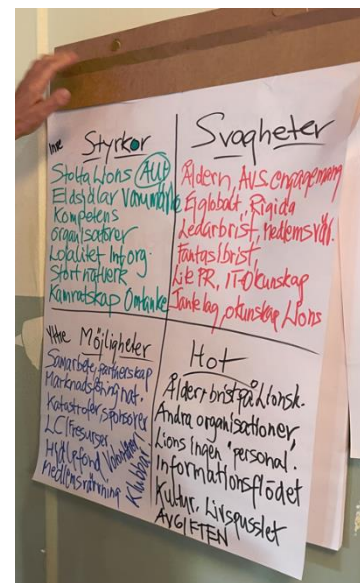 Inre Styrkor
Stolta Lions AU
Eldsjälar Varumärke
Kompetens
organisatörer
Lokalitet Int.org.
Stort nätverk
Kamratskap Omtanke
Svagheter
Åldern, Avs. engagemang
Ej globalt, Rigida
Ledarbrist, medlemsvår.
Fantasibrist,
Lite PR, IT-Okunskap
Jantelag, okunskap Lions
Yttre Möjligheter
Samarbete, partnerskap
Marknadsföring nat.
Katastrofer, sponsorer
LCI resurser
Hjälpfond Volontärer
medlemsvärvning Klubbar
Hot
Ålder + brist på Lionsk.
Andra organisationer,
Lions ingen "personal".
Informationsflödet
Kultur, Livspusslet
AVGIFTEN